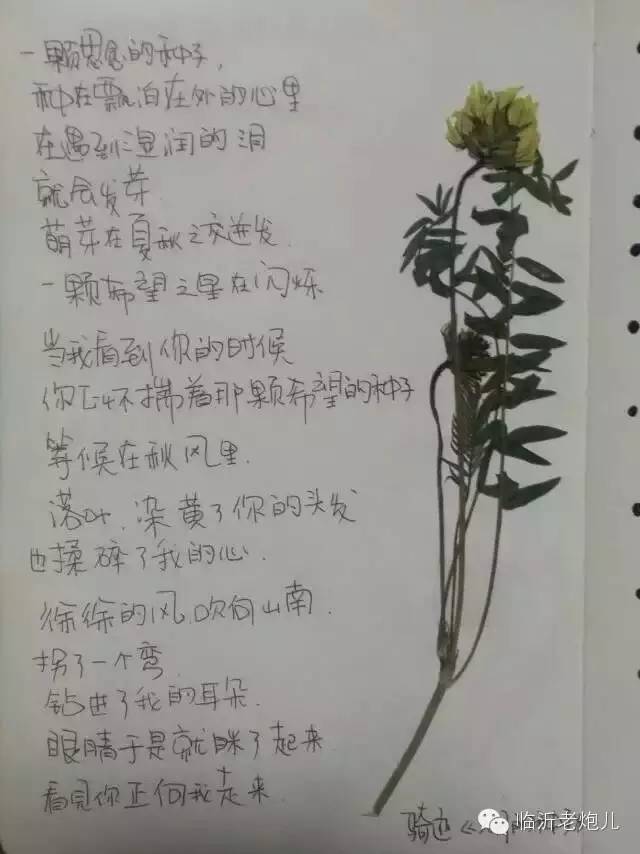 一颗思念的种子,
种在飘泊在外的心里
在遇到湿润的泪
就会发芽.
萌芽在夏秋之交迸发.
一颗希望之星在闪烁
当我看到你的时候
你正怀揣着那颗希望的种子
等候在秋风里.
落叶,染黄了你的头发
也揉碎了我的心.
徐徐的风,吹向山南.
拐了一个弯
钻进了我的耳朵.
眼睛于是就眯了起来
看见你正向我走来.
骑迹《
临沂老炮儿